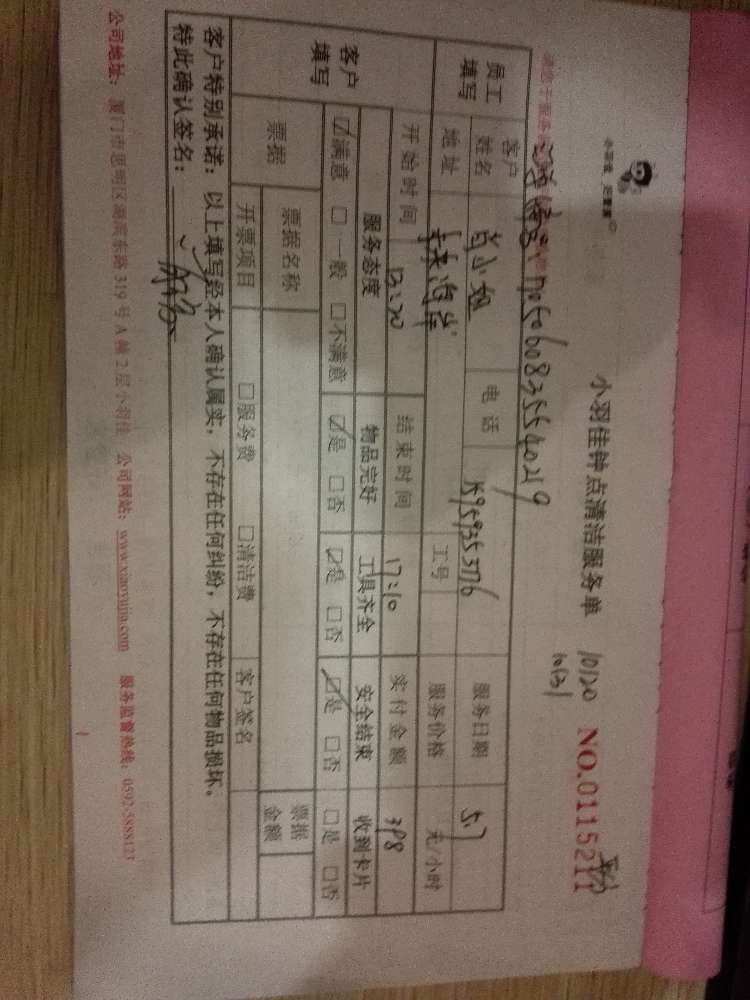 小羽佳钟点清洁服务单
10120
10131
NO.0115211
1705060835540219
员工填写
客户姓名
肖小姐
电话
15959353776
服务日期
5.7
地址
工号
服务价格
元/小时
客户填写
开始时间
13:20
结束时间
17:10
实付金额
398
服务态度
物品完好
工具齐全
安全结束
收到卡片
☑满意 □一般 □不满意
☑是 □否
☑是 □否
☑是 □否
□是 □否
票据
票据名称
票据金额
开票项目
□服务费 □清洁费
客户签名
客户特别承诺：以上填写经本人确认属实，不存在任何纠纷，不存在任何物品损坏。
特此确认签名：
公司地址：厦门市思明区湖滨东路319号A幢2层小羽佳 公司网站：www.xiaoyujia.com 服务监督热线：0592-5888123